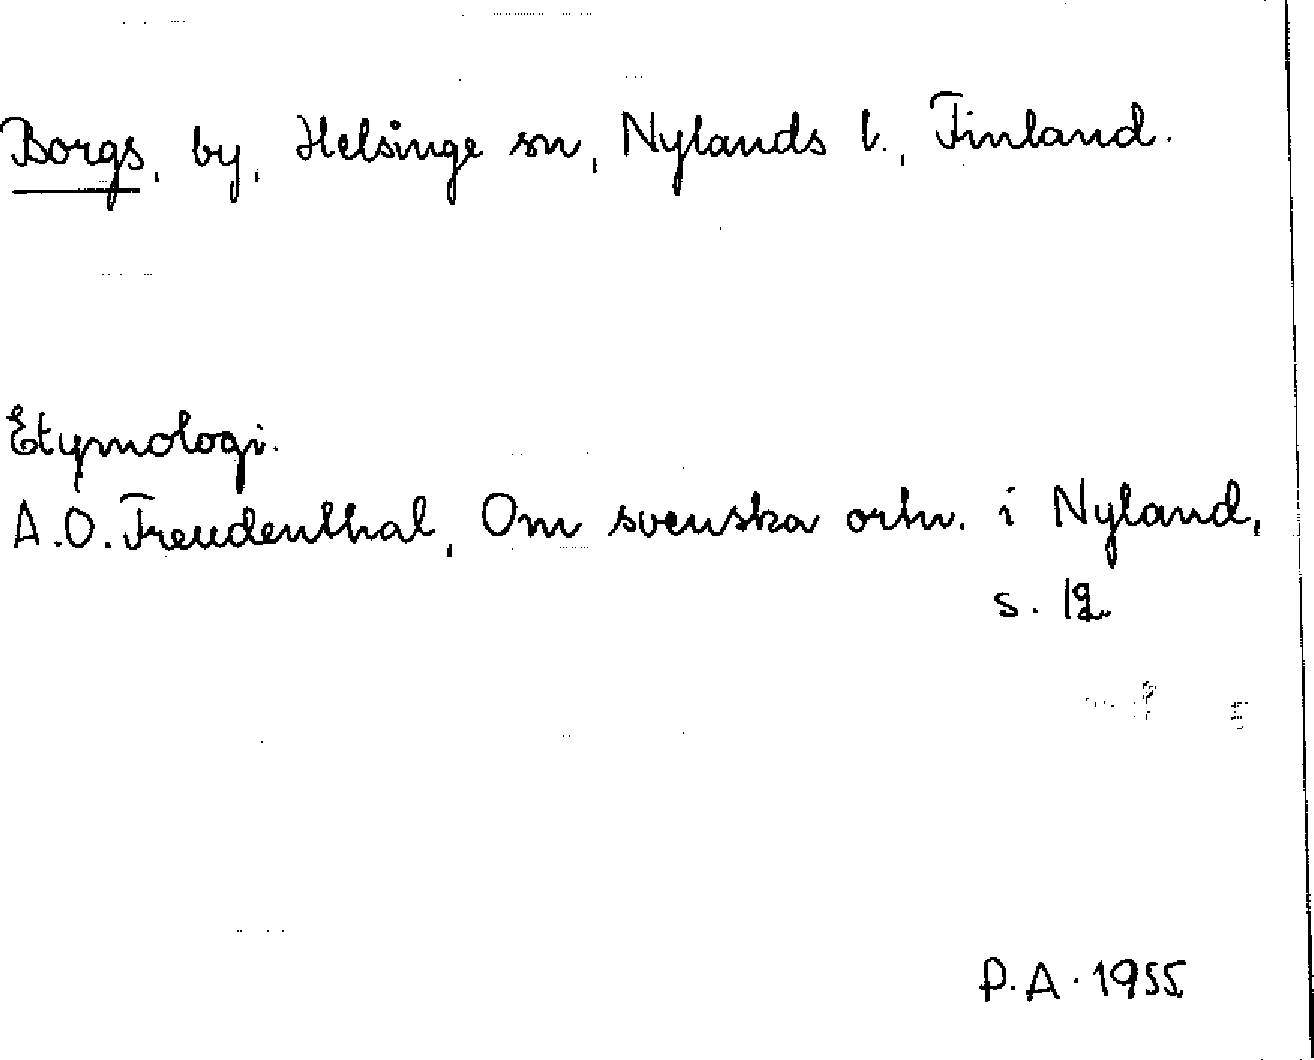 Borgs, by, Helsinge sn, Nylands l., Finland.
Etymologi.
A.O. Freudenthal, Om svenska ortn. i Nyland,
s. 12
P.A. 1955